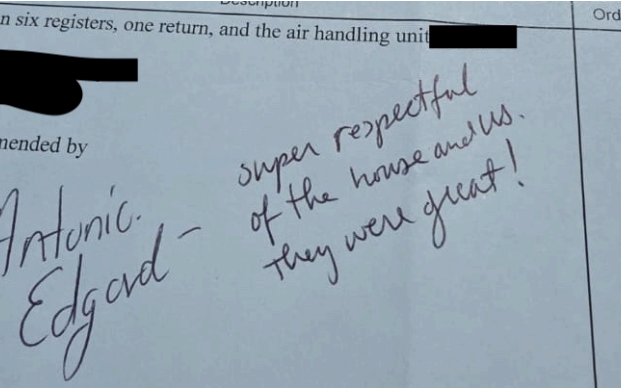 Description
Ord
n six registers, one return, and the air handling unit
mended by
Antonio.
Edgard -
super respectful
of the house and us.
They were great!